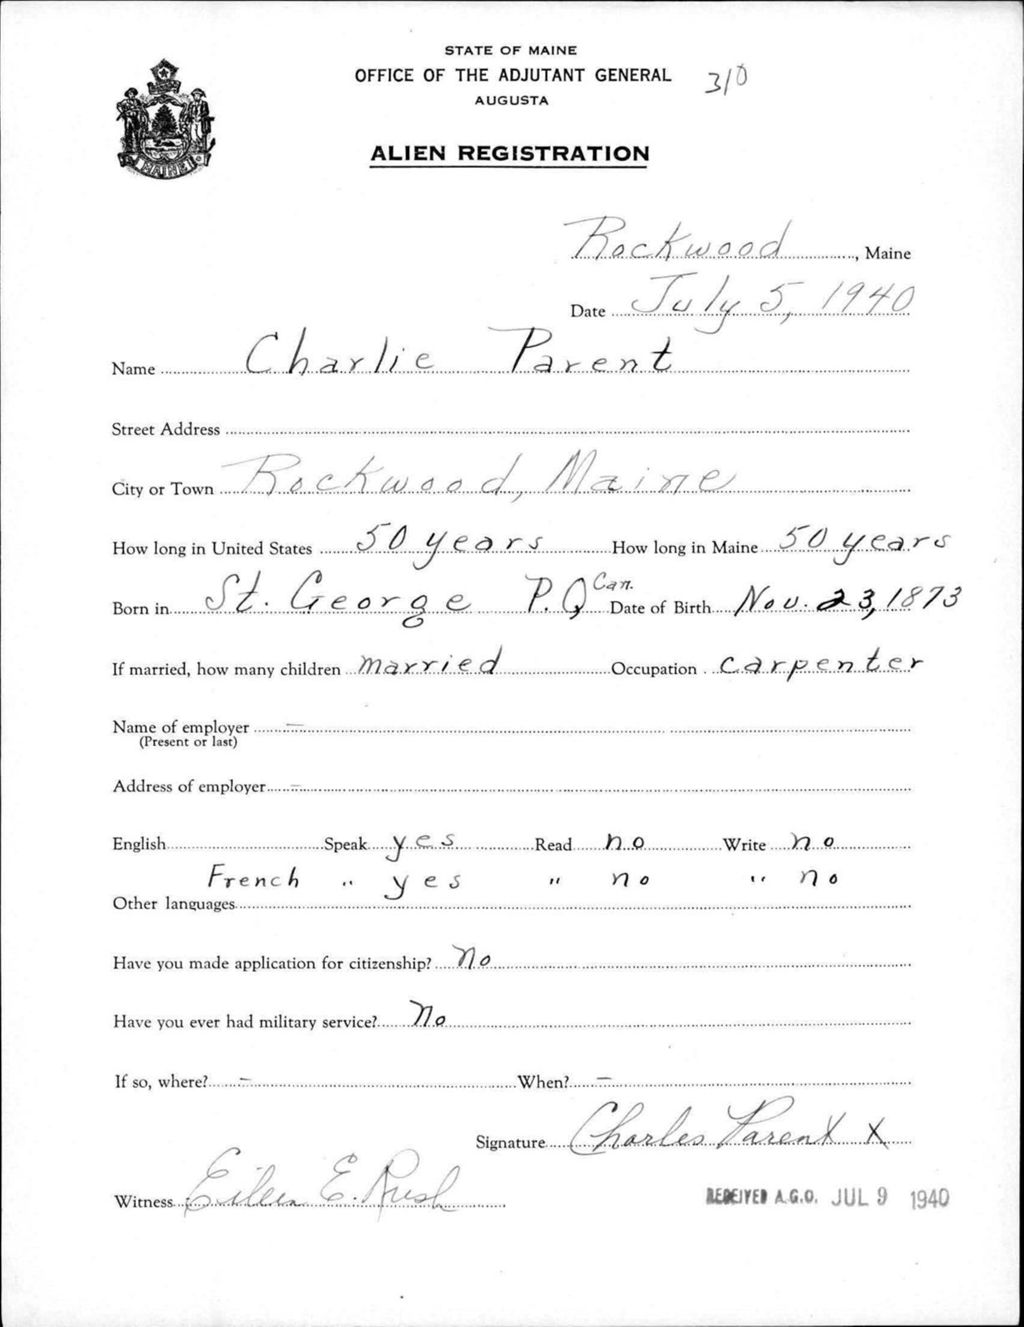 STATE OF MAINE
OFFICE OF THE ADJUTANT GENERAL
AUGUSTA
310
ALIEN REGISTRATION
MAINE
Rockwood, Maine
Date July 5, 1940
Name Charlie Parent
Street Address
City or Town Rockwood, Maine
How long in United States 50 years How long in Maine 50 years
Born in St. George P.Q Can. Date of Birth Nov. 23, 1873
If married, how many children married Occupation carpenter
Name of employer –
(Present or last)
Address of employer –
English Speak yes Read no Write no
French " yes " no " no
Other languages
Have you made application for citizenship? No
Have you ever had military service? No
If so, where? – When? –
Signature Charles Parent X
Witness Eileen E. Rush
RECEIVED A.G.O. JUL 9 1940